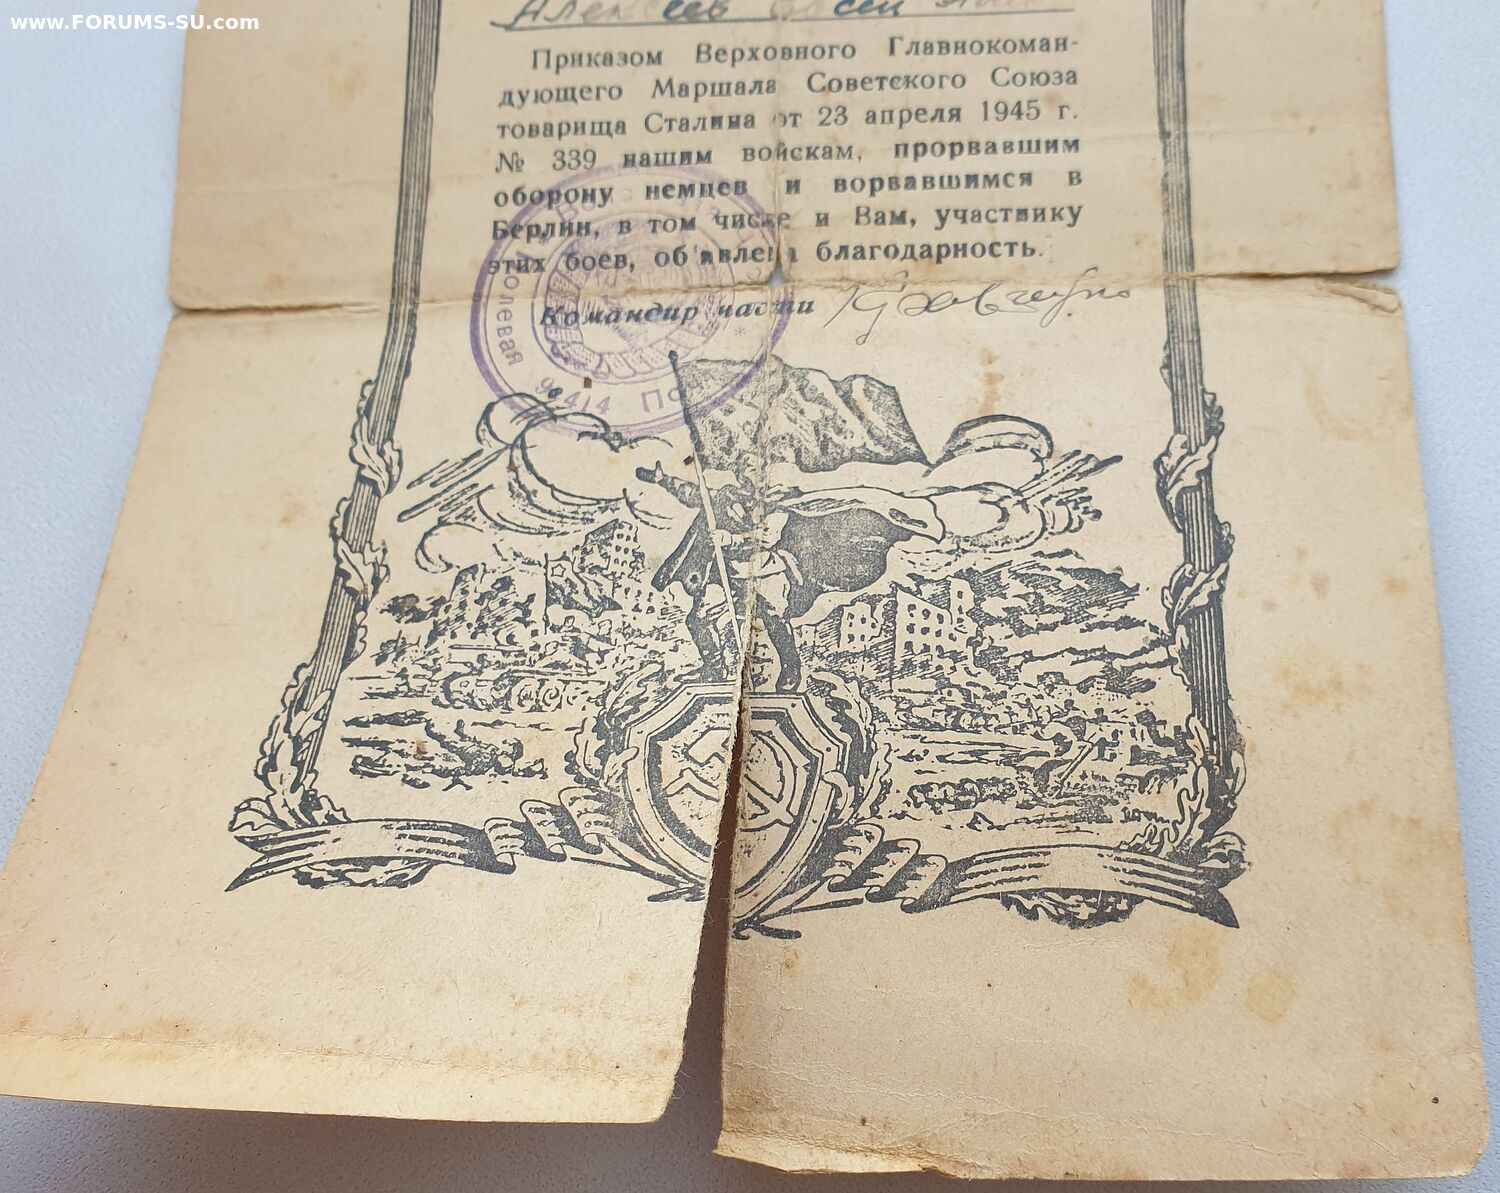 www.FORUMS-SU.com
Алексеев
Приказом Верховного Главнокоман-
дующего Маршала Советского Союза
товарища Сталина от 23 апреля 1945 г.
№ 339 нашим войскам, прорвавшим
оборону немцев и ворвавшимся в
Берлин, в том числе и Вам, участнику
этих боев, об'явлена благодарность.
Командир части
Полевая